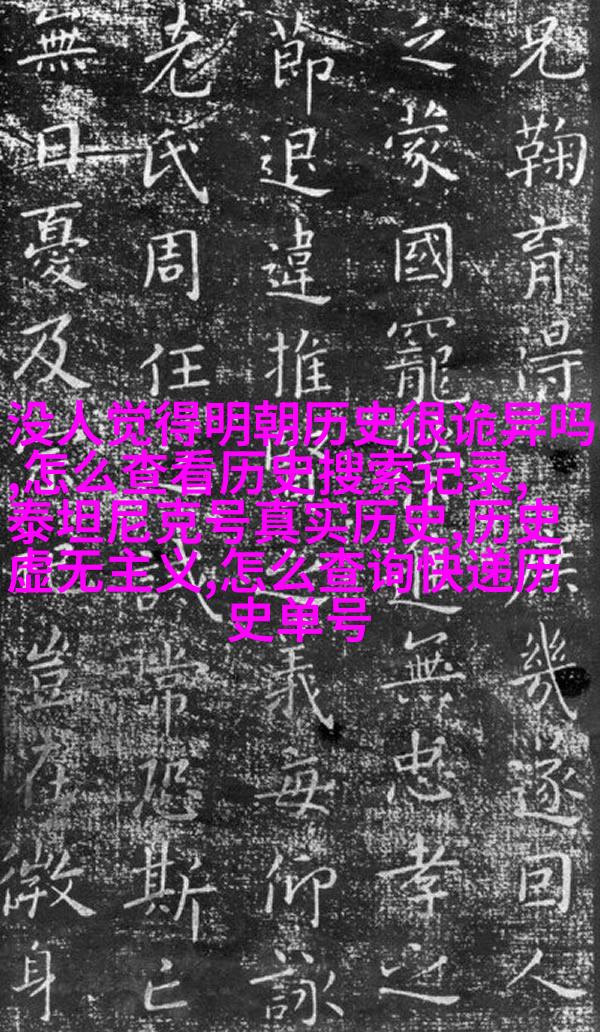 没人觉得明朝历史很诡异吗
,怎么查看历史搜索记录,
泰坦尼克号真实历史,历史
虚无主义,怎么查询快递历
史单号
兄鞠育得幾遂回人
之蒙國寵無忠孝之
節退違推義每仰詠
老氏周任常恐斯亡
無日憂及豈在微身